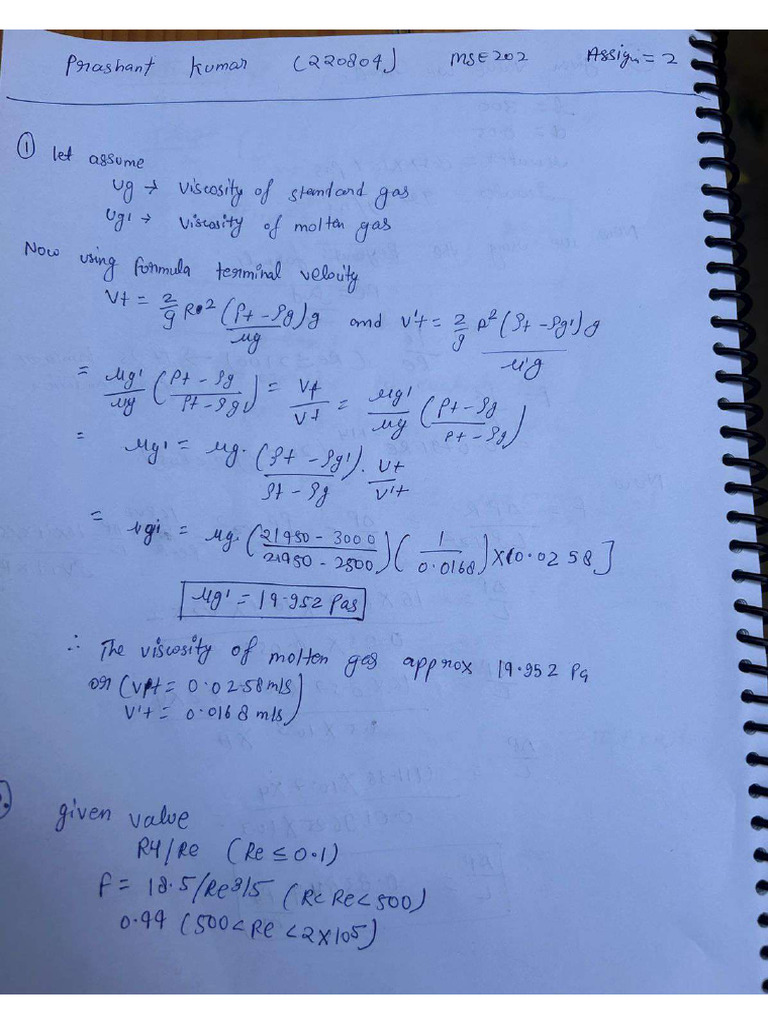 Prashant Kumar (220804) MSE202 Assign = 2
① let assume
ug → viscosity of standard gas
ug1 → viscosity of molten gas
Now using formula terminal velocity
Vt = 2/9 R² (ρt - ρg)g / μg and V't = 2/9 R² (ρt - ρg')g / μ'g
= μg'/μg (ρt - ρg / ρt - ρg1) = Vt/V't = μg'/μg (ρt - ρg / ρt - ρg)
= μg' = μg. (ρt - ρg') / ρt - ρg . Vt/V't
= μgi = μg. (21950 - 3000 / 21950 - 2500) (1 / 0.0168) × (0.0258]
μg' = 19.952 Pas
∴ The viscosity of molten gas approx 19.952 Pa
or (Vt = 0.0258 m/s)
V't = 0.0168 m/s)
given value
R4/Re (Re ≤ 0.1)
f = 18.5/Re3/5 (Rc Re < 500)
0.44 (500 < Re < 2×105)